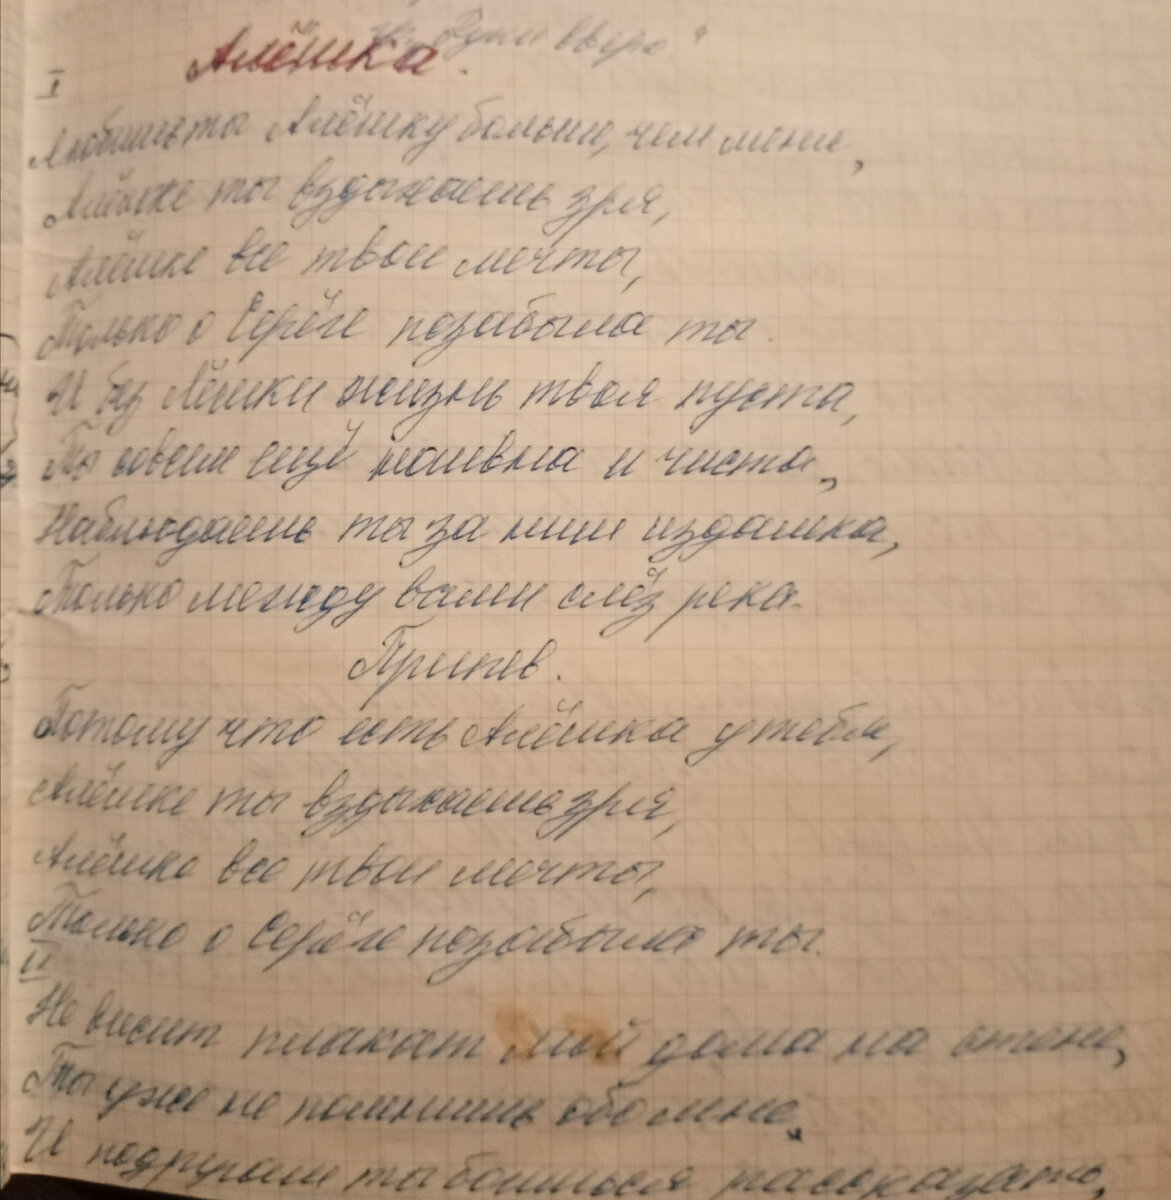 "Руки вверх"
Алёшка.
I
Любишь ты Алёшку больше, чем меня,
Алёшке ты вздыхаешь зря,
Алёшке все твои мечты,
Только о Серёге позабыла ты.
И без Лёшки жизнь твоя пуста,
Ты совсем ещё наивна и чиста,
Наблюдаешь ты за ним издалека,
Только между вами слёз река.
Припев.
Потому что есть Алёшка у тебя,
Алёшке ты вздыхаешь зря,
Алёшке все твои мечты,
Только о Серёге позабыла ты.
II
Не висит плакат мой дома на стене,
Ты уже не помнишь обо мне,
И подругам ты боишься рассказать,